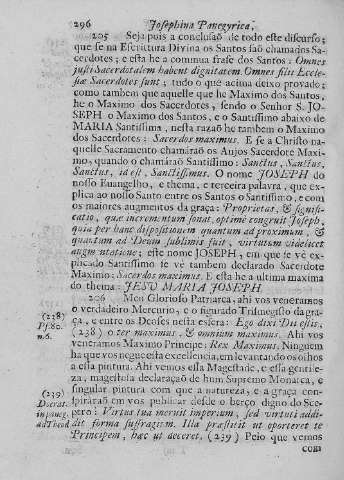 296 Josephina Panegyrica,
205 Seja pois a conclusaõ de todo este discurso;
que se na Escritura Divina os Santos saõ chamados Sa-
cerdotes; e esta he a commua frase dos Santos: Omnes
justi Sacerdotalem habent dignitatem Omnes filii Eccle-
siæ Sacerdotes sunt; tudo o que acima deixo provado;
como tambem que aquelle que he Maximo dos Santos,
he o Maximo dos Sacerdotes, sendo o Senhor S. JO-
SEPH o Maximo dos Santos, e o Santissimo abaixo de
MARIA Santissima, nesta razaõ he tambem o Maximo
dos Sacerdotes: Sacerdos maximus. E se a Christo na-
quelle Sacramento chamáraõ os Anjos Sacerdote Maxi-
mo, quando o chamáraõ Santissimo: Sanctus, Sanctus,
Sanctus, id est, Sanctissimus. O nome JOSEPH do
nosso Euangelho, e thema, e terceira palavra, que ex-
plica ao nosso Santo entre os Santos o Santissimo, e com
os maiores augmentos da graça: Proprietas, & signifi-
catio, quæ incrementum sonat, optimè congruit Joseph,
quia per hanc dispositionem quantum ad proximum, &
quantum ad Deum sublimis fuit, virtutum videlicet
augmentatione; este nome JOSEPH, em que se vê ex-
plicado Santissimo se vê tambem declarado Sacerdote
Maximo: Sacerdos maximus. E esta he a ultima maxima
do thema: JESU MARIA JOSEPH.
206 Meu Glorioso Patriarca, ahi vos veneramos
o verdadeiro Mercurio, e o figurado Trismegisto da gra-
ça, e entre os Deoses nesta esfera: Ego dixi Dii estis,
(238) o ter maximus, & omnium maximus. Ahi vos
veneramos Maximo Principe: Rex Maximus. Ninguem
ha que vos negue esta excellencia, em levantando os olhos
a essa pintura. Ahi vemos essa Magestade, e essa gentile-
za, magestosa declaraçaõ de hum Supremo Monarca, e
singular pintura com que a natureza, e a graça cons-
piráraõ em vos publicar desde o berço digno do Sce-
ptro: Virtus tua meruit imperium, sed virtuti addi-
dit forma suffragium. Illa præstitit ut oporteret te
Principem, hæc ut deceret, (239) Pelo que vemos
com
(238)
Ps. 80.
n. 6.
(239)
Docrat.
in paneg.
ad Theod